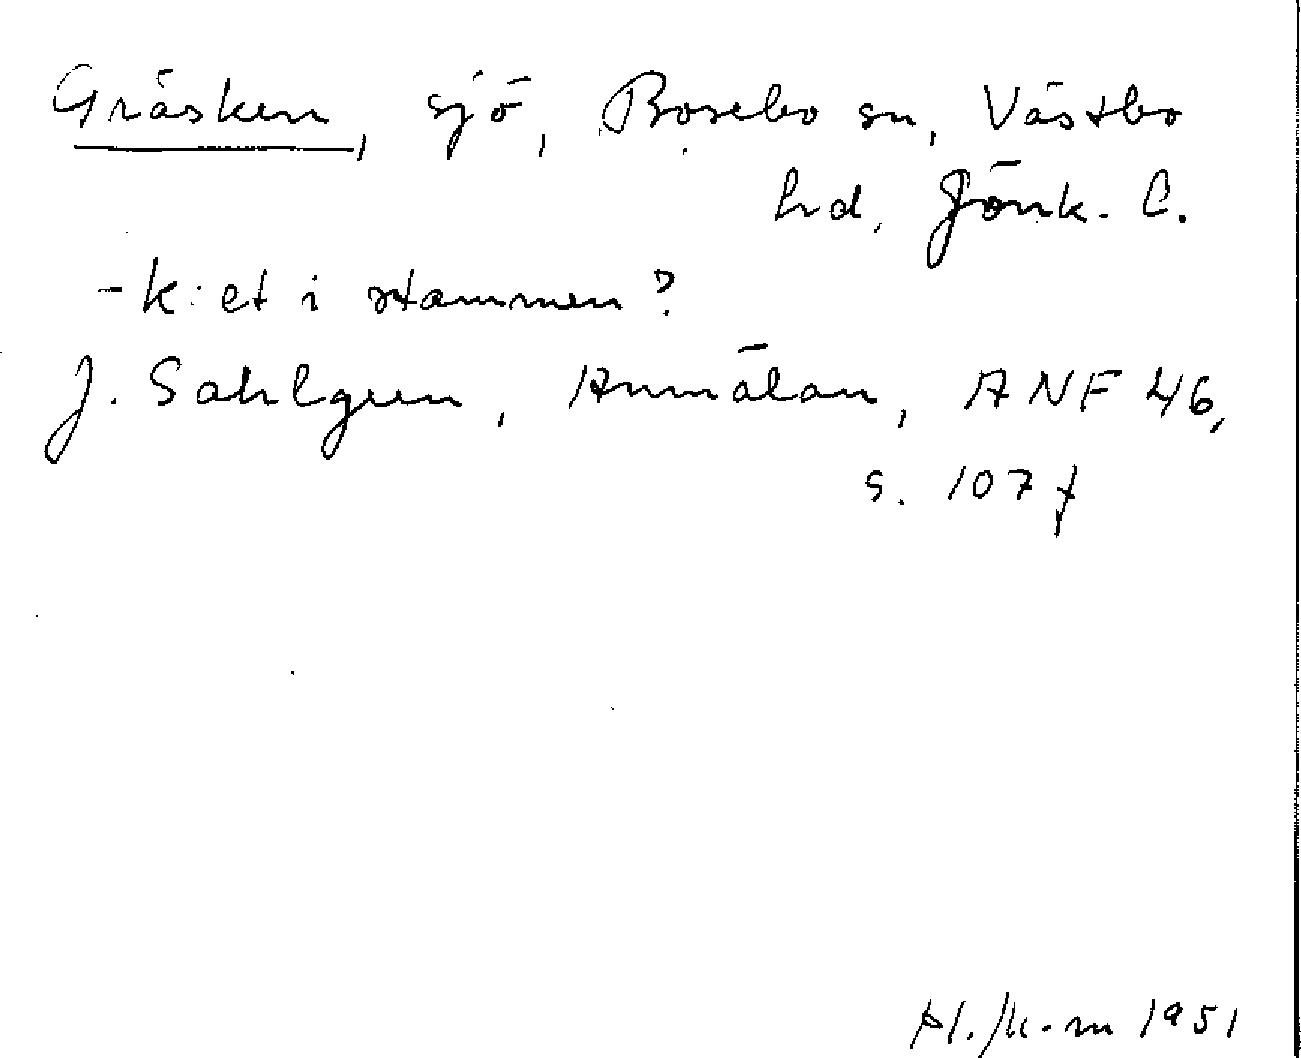 Gräsken, sjö, Bosebo sn, Västbo
hd, Jönk. l.
-k:et i stammen?
J. Sahlgren, Anmälan, ANF 46,
s. 107 f
1951